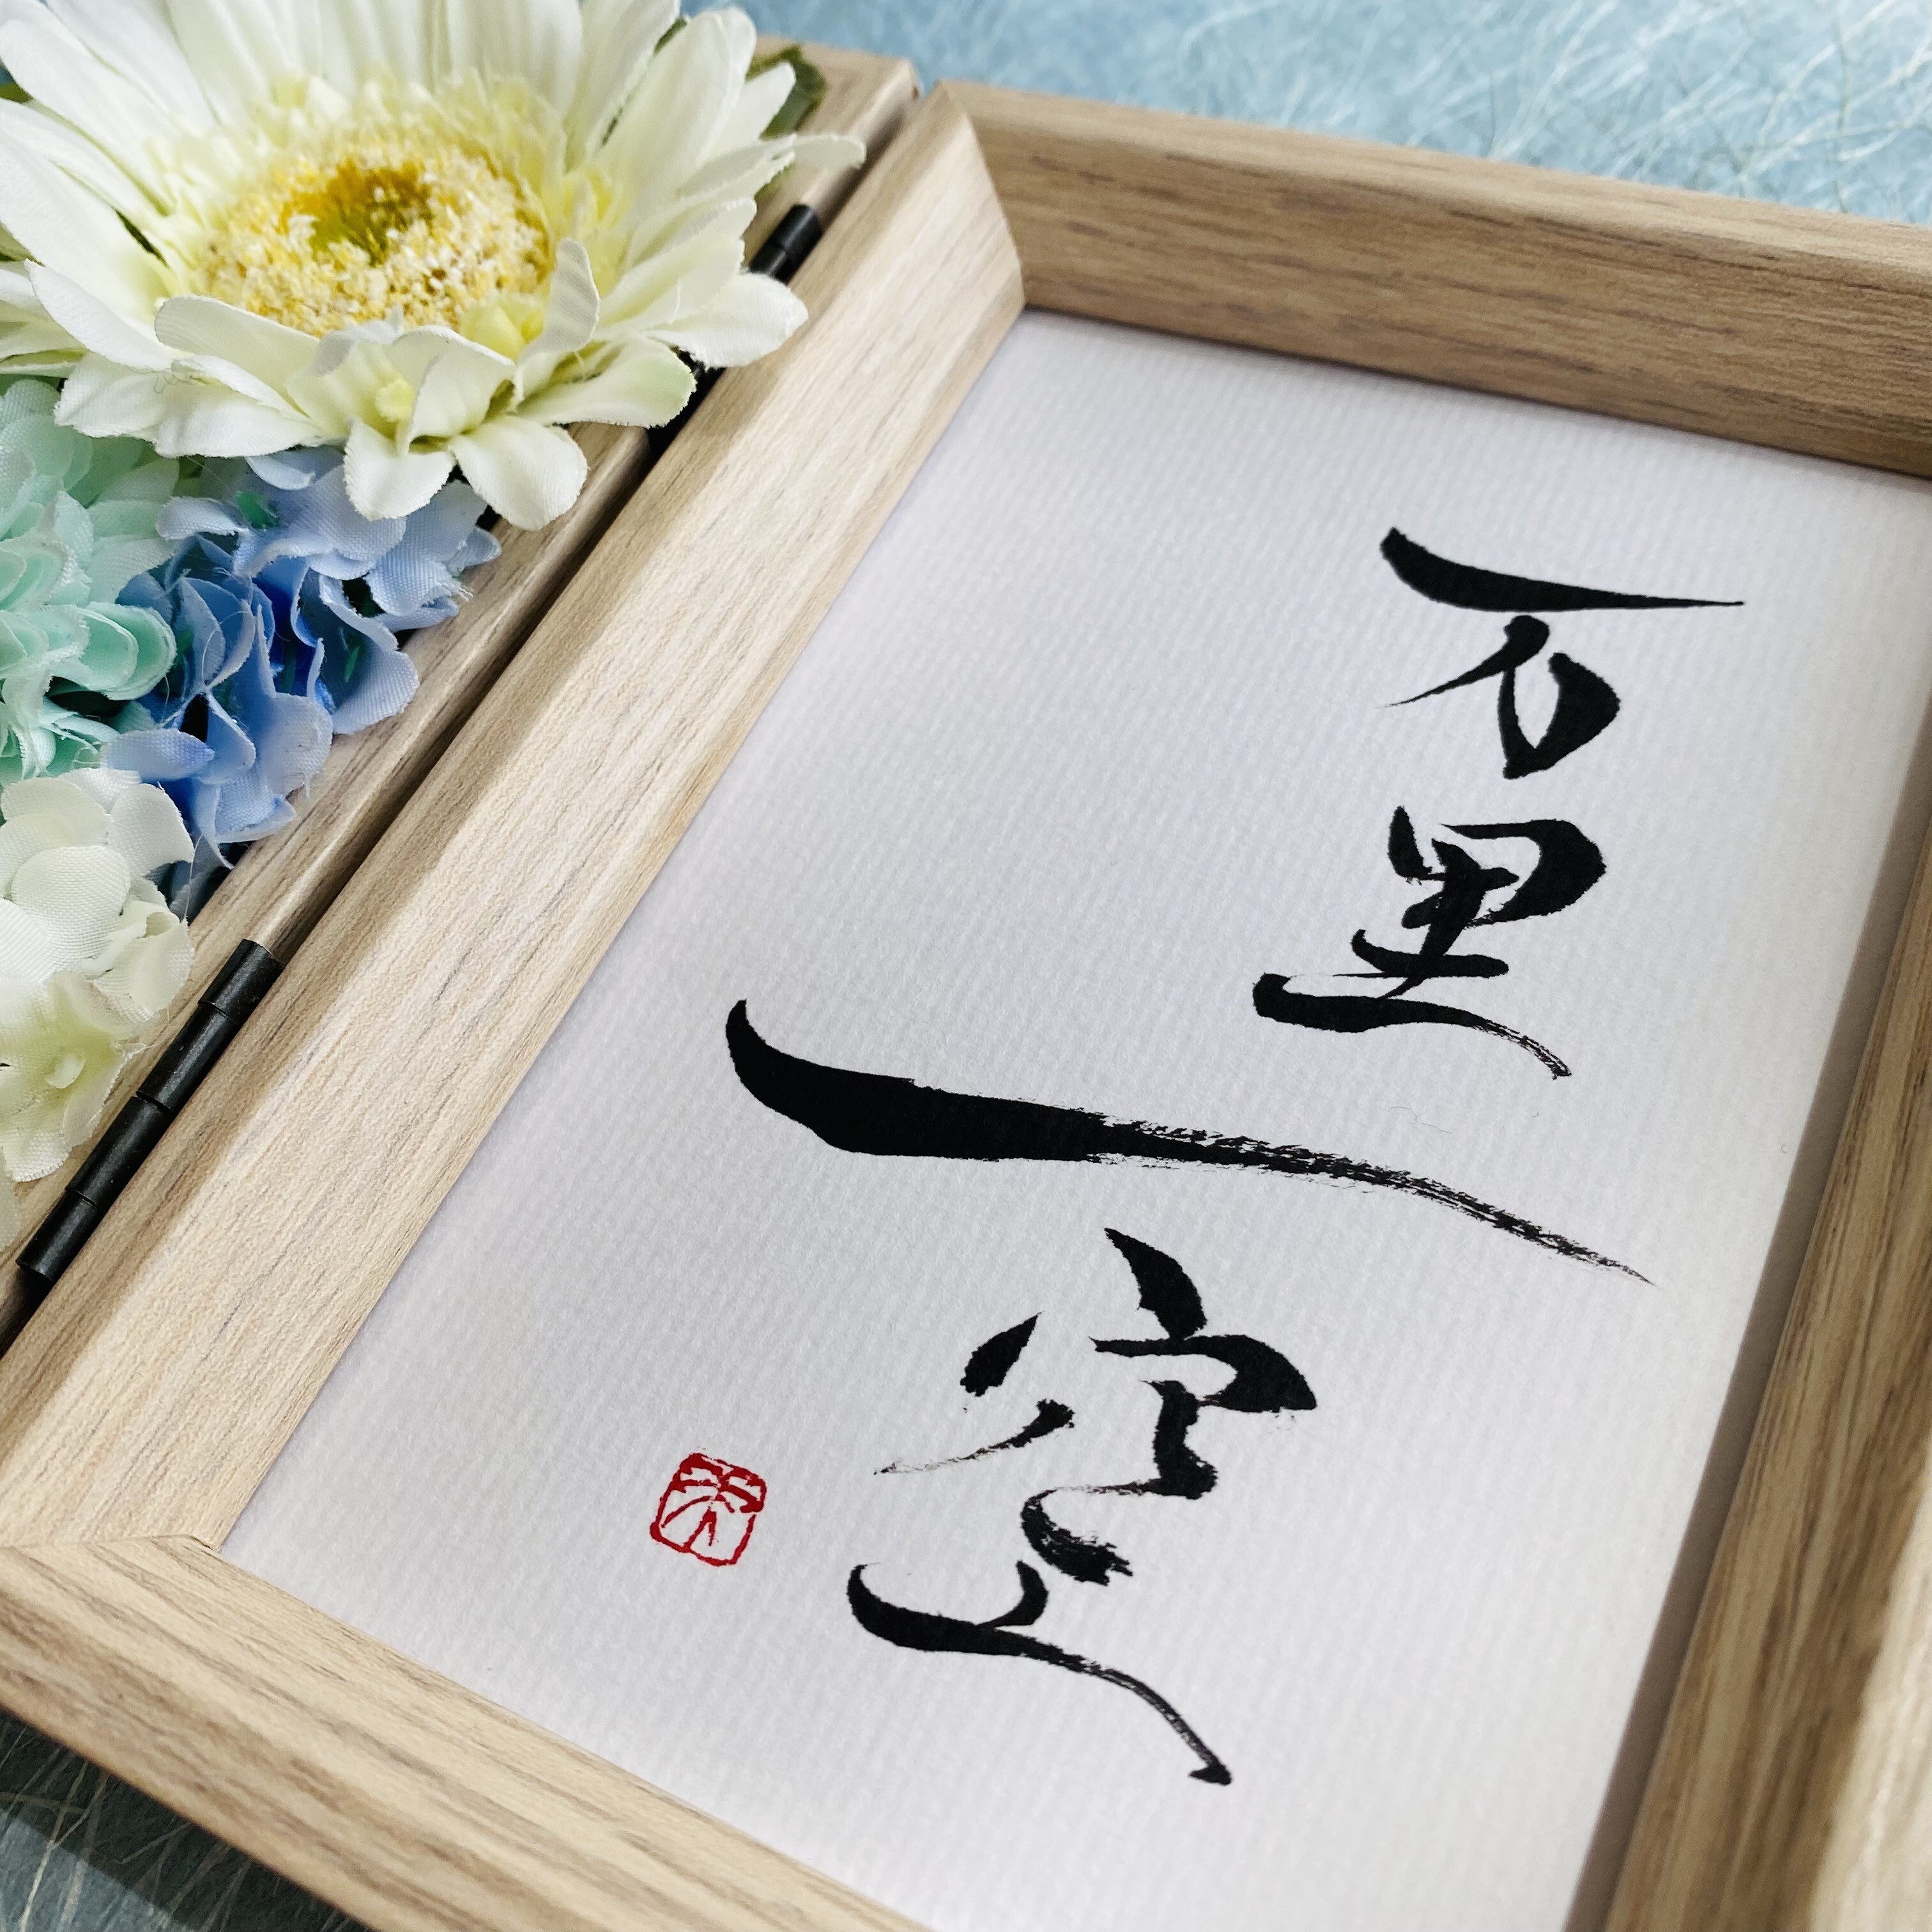 万里一空